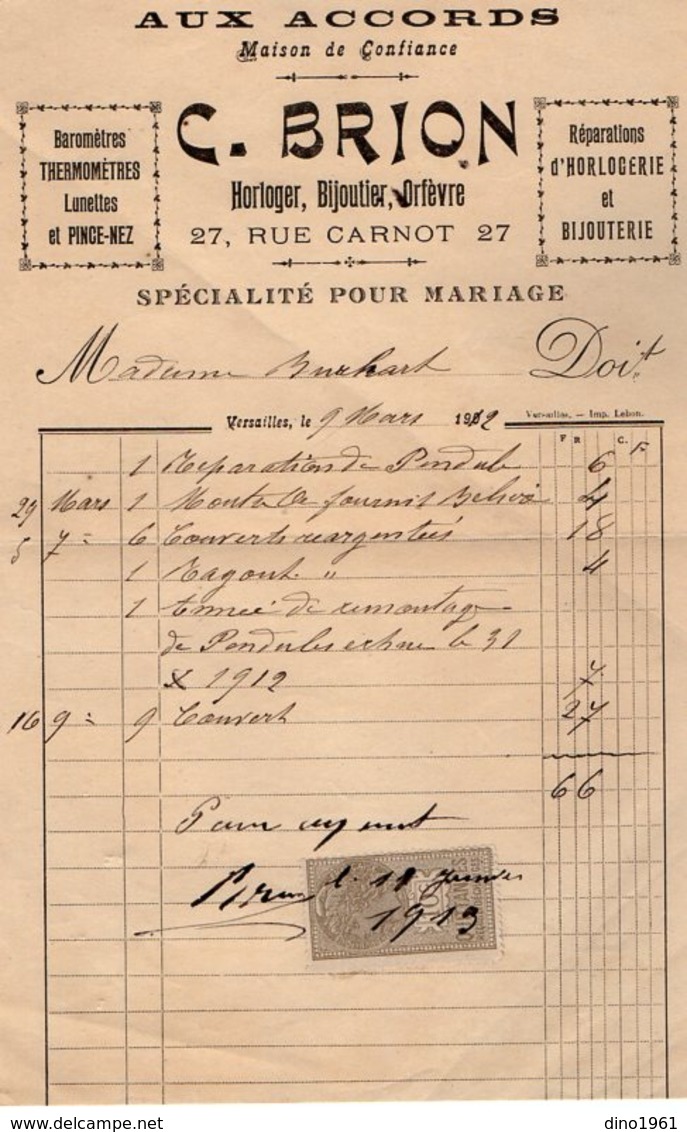 AUX ACCORDS
Maison de Confiance
C. BRION
Baromètres
THERMOMÈTRES
Lunettes
et PINCE-NEZ
Horloger, Bijoutier, Orfèvre
27, RUE CARNOT 27
Réparations
d'HORLOGERIE
et
BIJOUTERIE
SPÉCIALITÉ POUR MARIAGE
Madame Burkart Doit
Versailles, le 9 Mars 1912
Versailles. — Imp. Lebon.
F R C.
1 Reparation de Pendule 6
29 Mars 1 fournit 4
5 7 = 6 Couverts reargentés 18
1 Ragout " 4
1 Année de remontage
de Pendules le 31
1912 7
16 9 = 9 Couvert 27
66
Pour acquit
Brion le 11 Janvier
1913
10c
QUITTANCES
www.delcampe.net
dino1961